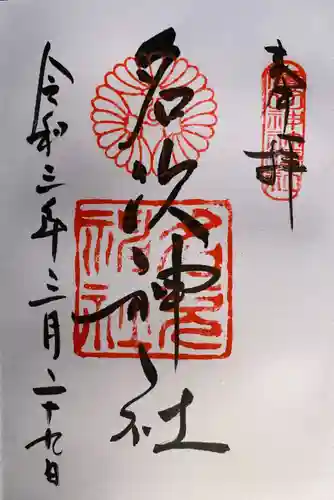 奉拝
名次神社
令和三年三月二十九日
名次
神社